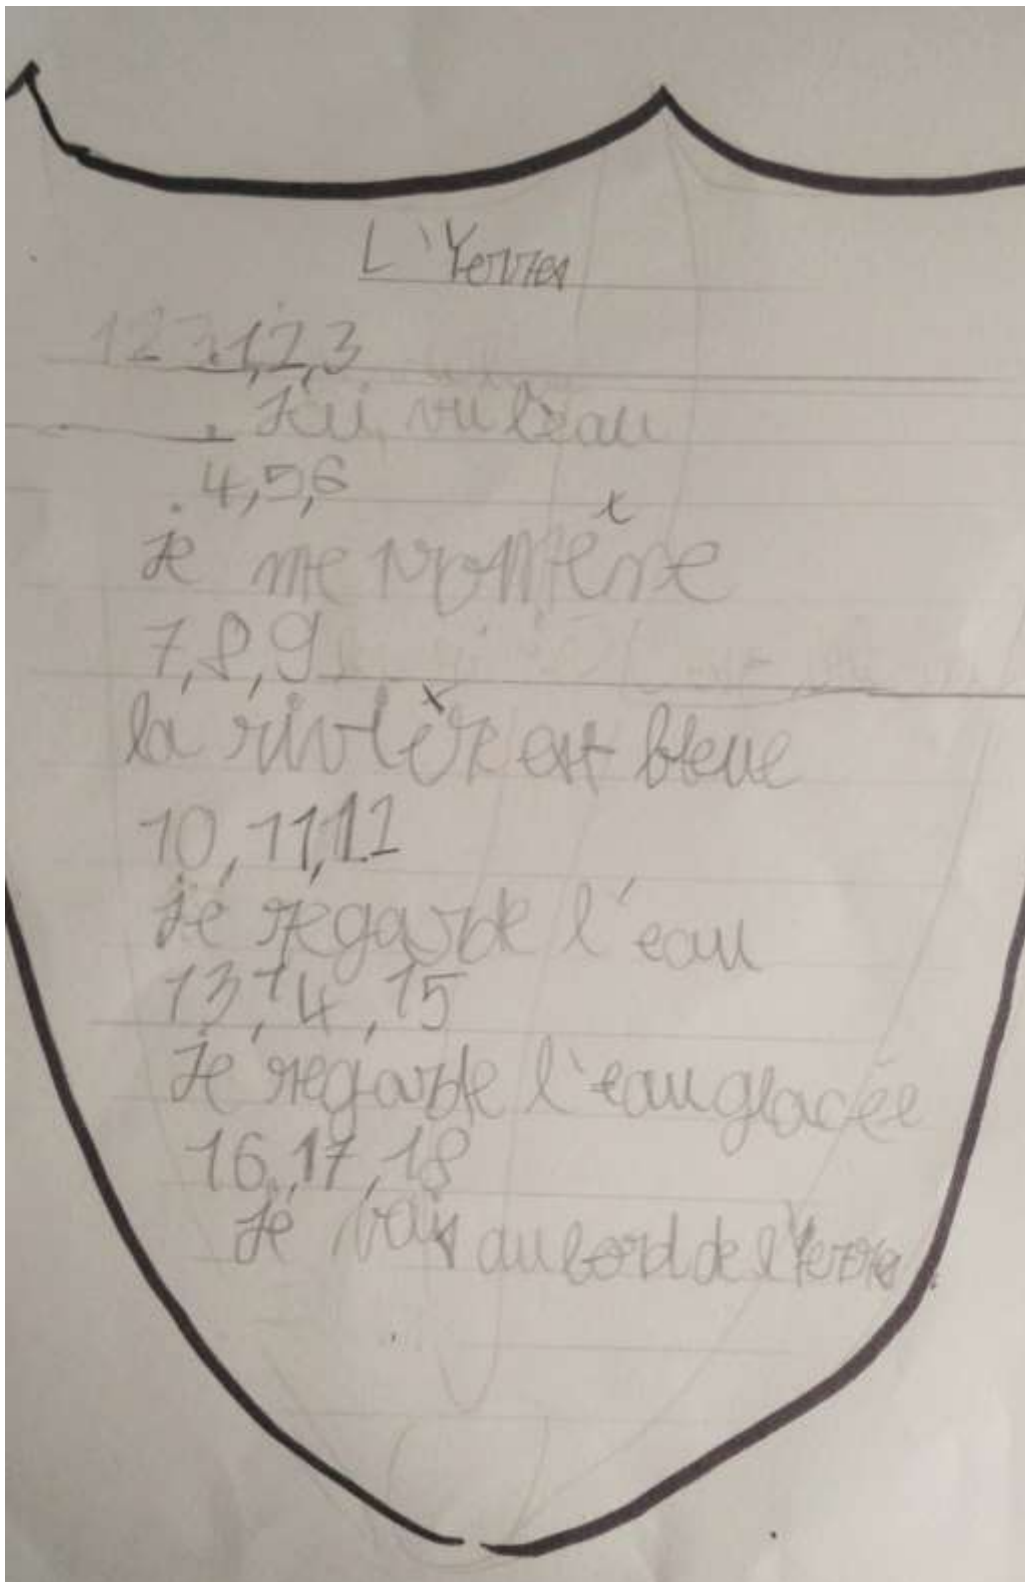 L'Yerres
123 1,2,3
J'ai vu l'eau
4,5,6
je me promène
7,8,9
la rivière est bleue
10,11,12
je regarde l'eau
13,14,15
Je regarde l'eau glacée
16,17,18
Je vais au bord de l'Yerres.